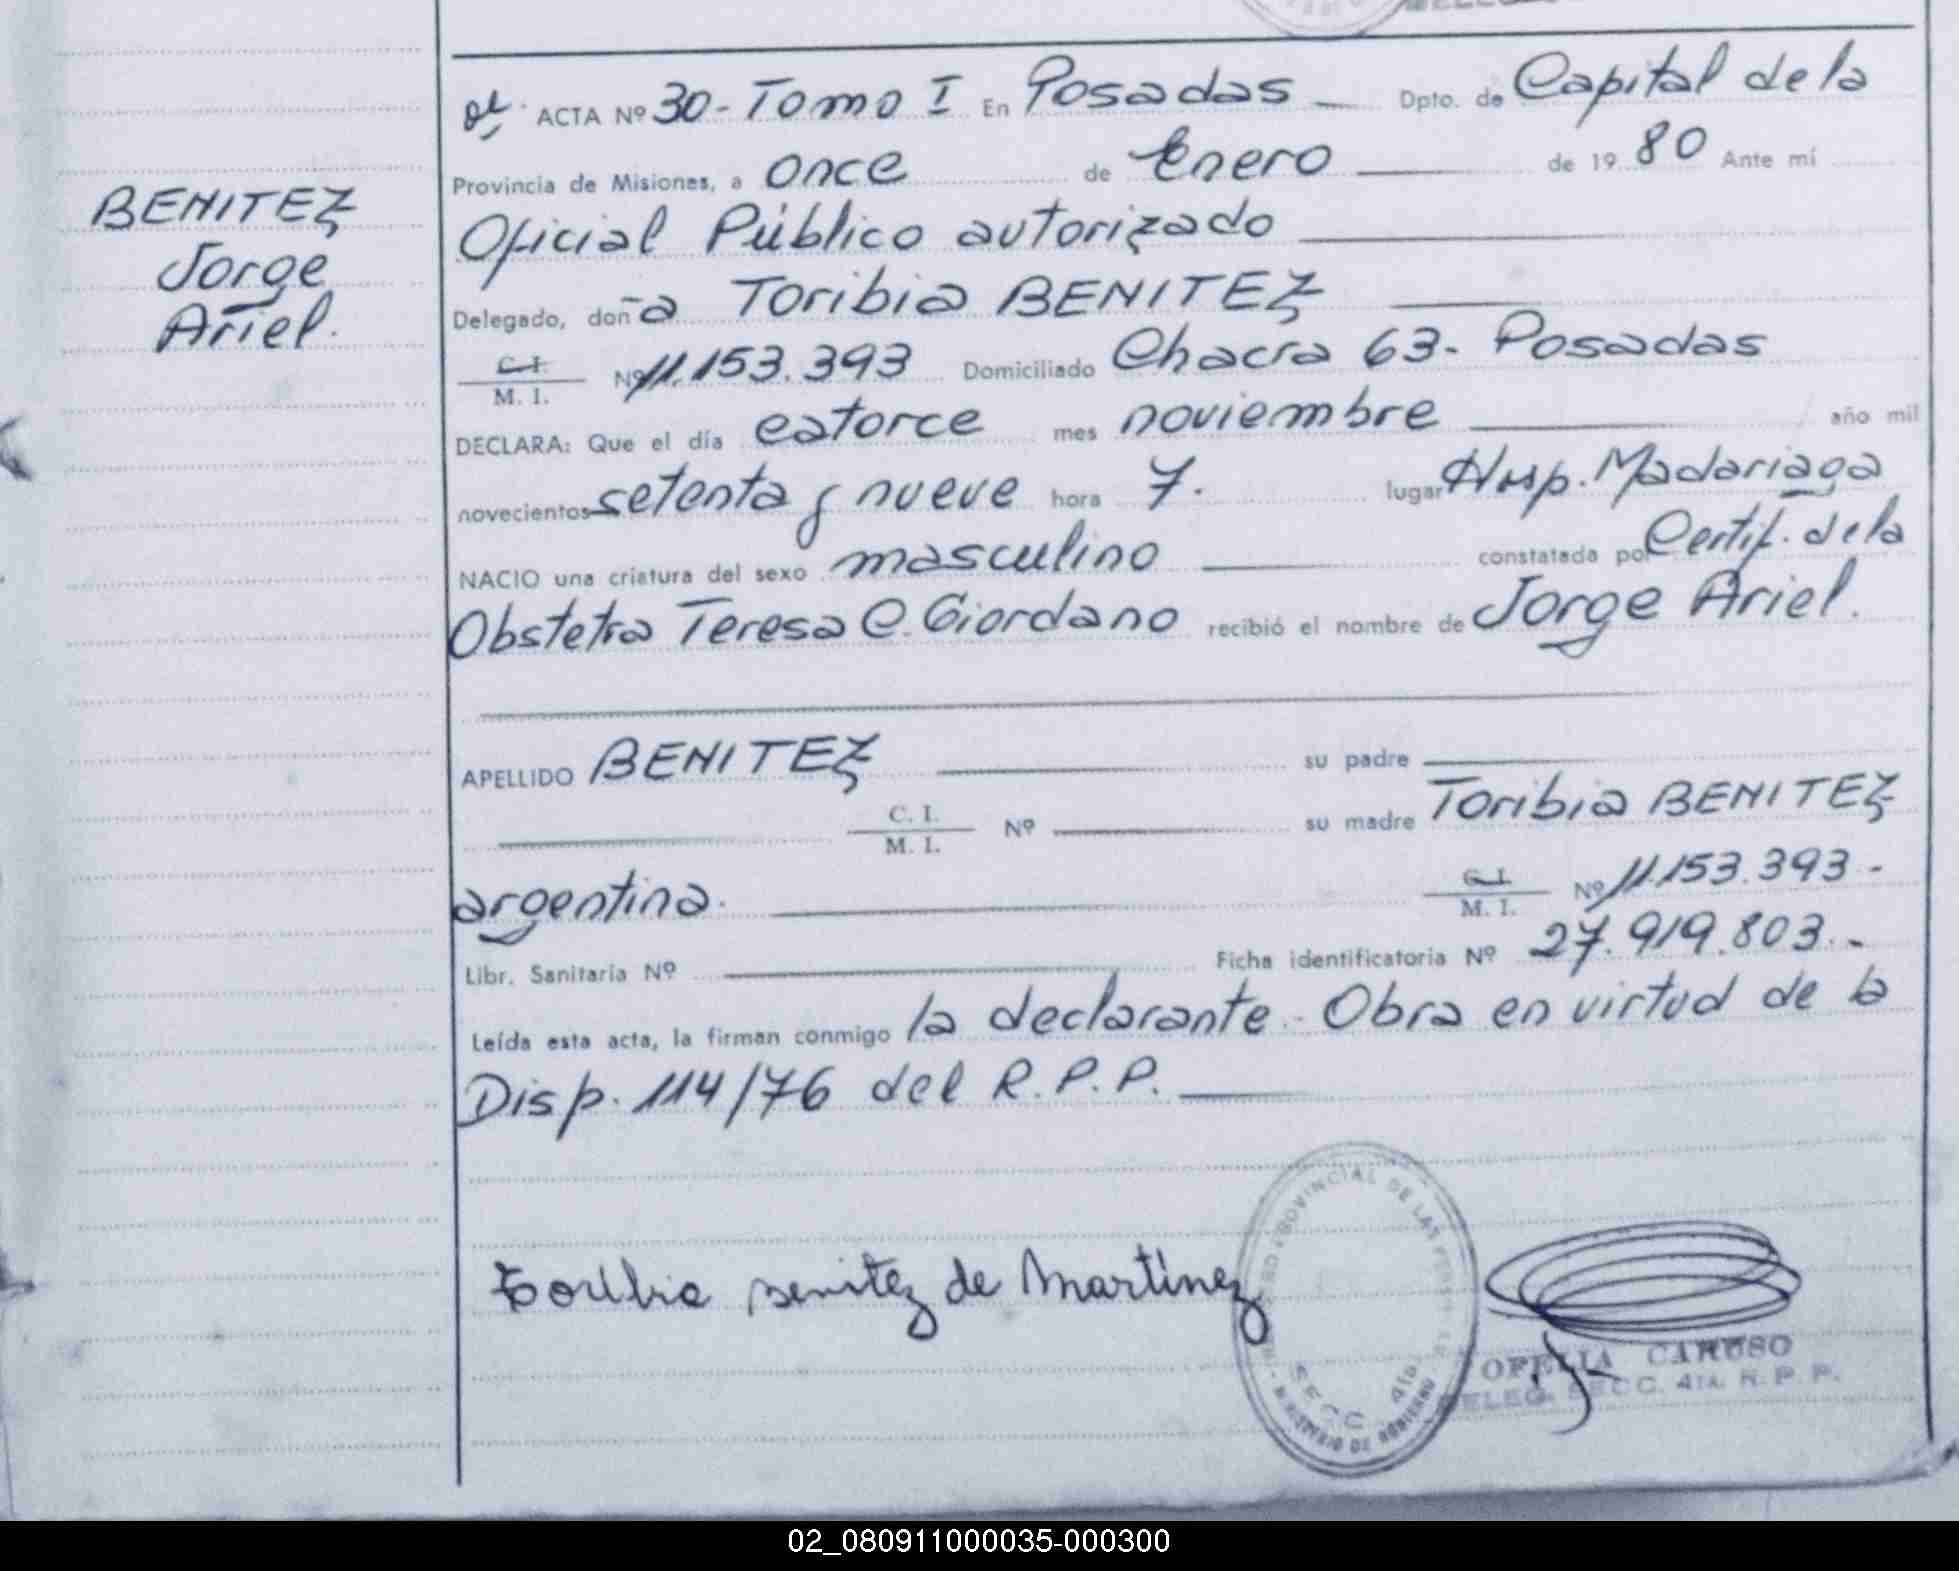 ACTA Nº 30 - Tomo I En Posadas Dpto. de Capital de la
Provincia de Misiones, a once de Enero de 1980 Ante mí
BENITEZ
Jorge
Ariel.
Oficial Público autorizado
Delegado, doña Toribia BENITEZ
C. I.
M. I. Nº 11.153.393 Domiciliado Chacra 63 - Posadas
DECLARA: Que el día catorce mes noviembre año mil
novecientos setenta y nueve hora 7. lugar Hosp. Madariaga
NACIO una criatura del sexo masculino constatada por Certif. de la
Obstetra Teresa C. Giordano recibió el nombre de Jorge Ariel.
APELLIDO BENITEZ su padre
C. I.
M. I. Nº su madre Toribia BENITEZ
argentina. C. I.
M. I. Nº 11.153.393 -
Libr. Sanitaria Nº Ficha identificatoria Nº 27.919.803. -
Leída esta acta, la firman conmigo la declarante - Obra en virtud de la
Disp. 114/76 del R. P. P.
Toribia Benitez de Martinez
PROVINCIAL DE LAS
SECC. 4ta
MINISTERIO DE GOBIERNO
OFELIA CARUSO
DELEG. SECC. 4TA. R. P. P.
02_080911000035-000300